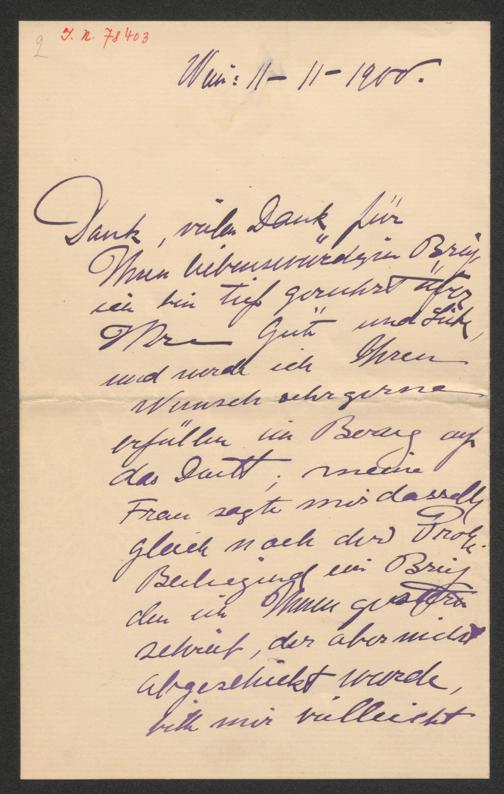 2
I. N. 78403
Wien: 11 – 11 – 1900.
Dank, vielen Dank für
Ihren liebenswürdigen Brief
ich bin tief gerührt über
Ihre Güte und Liebe,
und werde ich Ihren
Wunsch sehr gerne
erfüllen im Bezug auf
das Duett, meine
Frau sagte mir dasselbe
gleich nach der Probe.
Beiliegend ein Brief
den ich Ihnen gestern
schrieb, der aber nicht
abgeschickt wurde,
bitte mir vielleicht